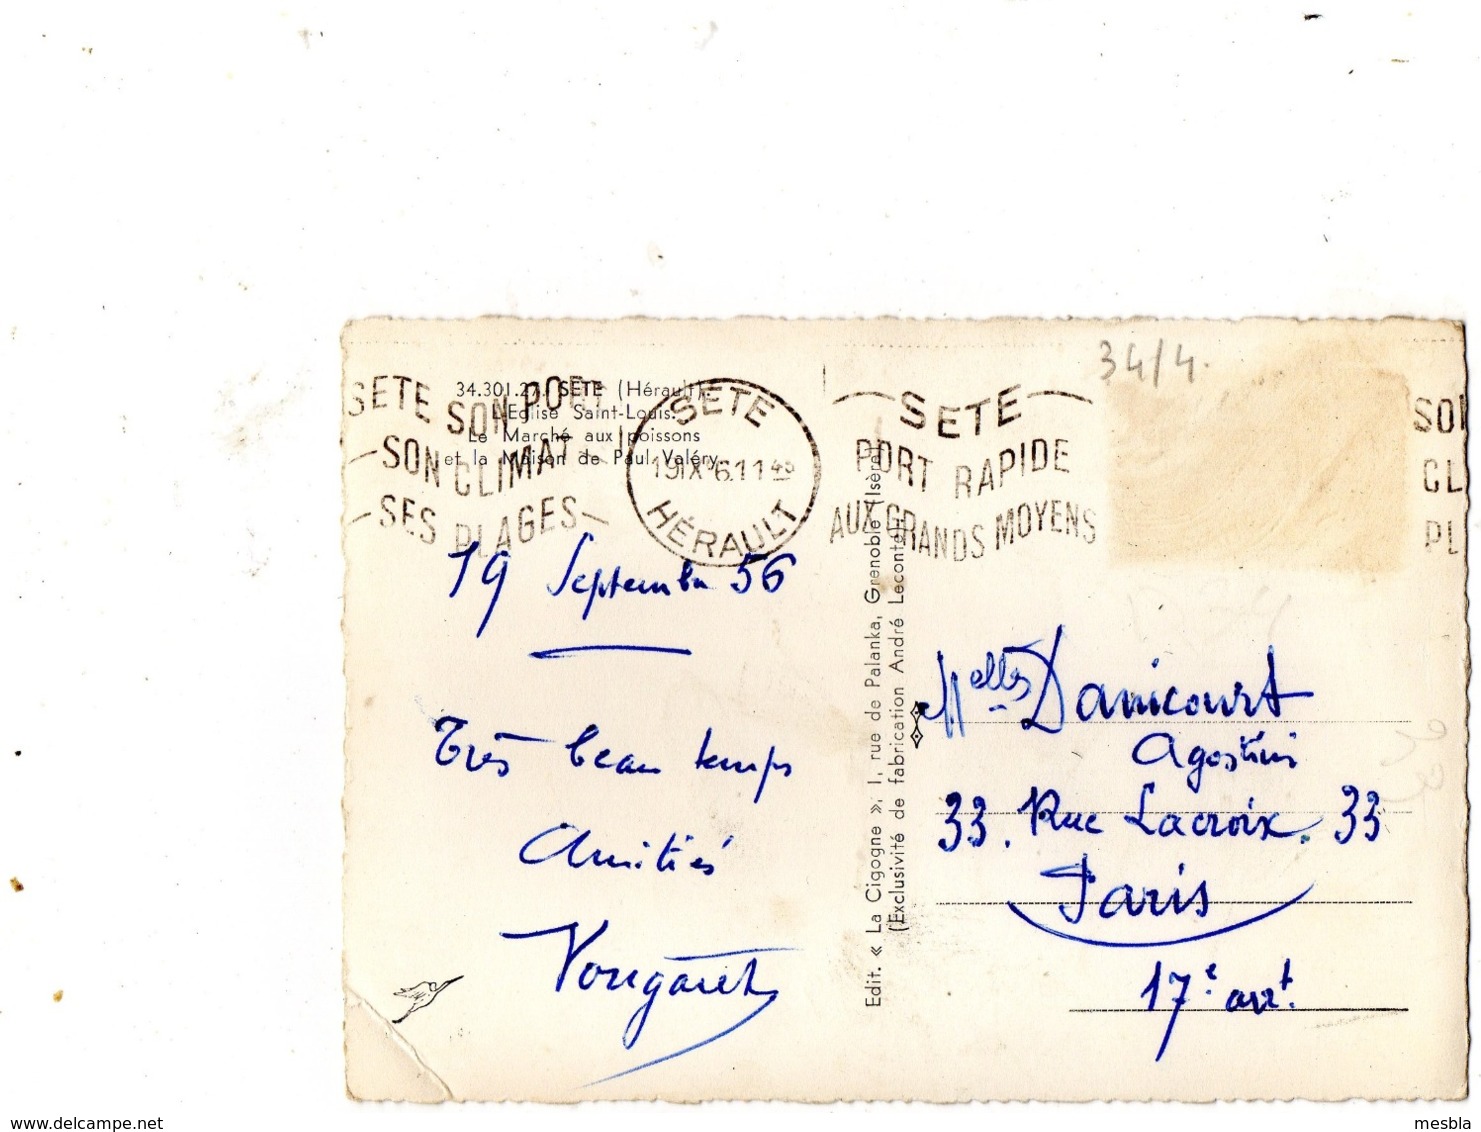 34/4.
34.301.27. SETE (Hérault).
L'Eglise Saint-Louis.
Le Marché aux poissons
et la Maison de Paul Valéry.
SETE SON PORT
SON CLIMAT
SES PLAGES
SETE
19 IX 56.11 45
HÉRAULT
SETE
PORT RAPIDE
AUX GRANDS MOYENS
SO
CL
PL
19 Septembre 56
Très beau temps
Amitiés
Edit. « La Cigogne », 1, rue de Palanka, Grenoble (Isère)
(Exclusivité de fabrication André Leconte).
Melles Danicourt
Agostini
33. Rue Lacroix. 33
Paris
17e arrt.
delcampe.net
mesbla